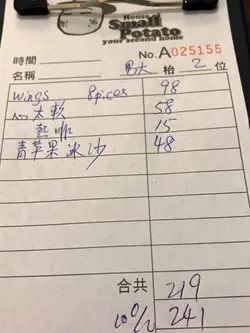 House
Small
Potato
your second home
No. A 025155
時間
名稱 男大 枱 2 位
wings 8pices 98
心太軟 58
熱啡 15
青苹果冰沙 48
合共 219
10% 241